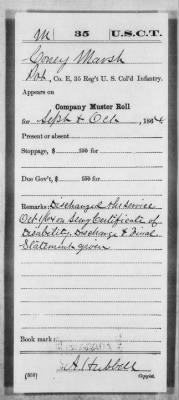 M 35 U.S.C.T.
Coney Marsh
Pvt, Co. E, 35 Reg't U. S. Col'd Infantry.
Appears on
Company Muster Roll
for Sept & Oct, 1864
Present or absent
Stoppage, $ 100 for
Due Gov't, $ 100 for
Remarks: Discharged the service
Oct 1/64 on Surg Certificate of
Disability. Discharge & Final
Statement given
Book mark:
A. Hubbell
(359) Copyist.